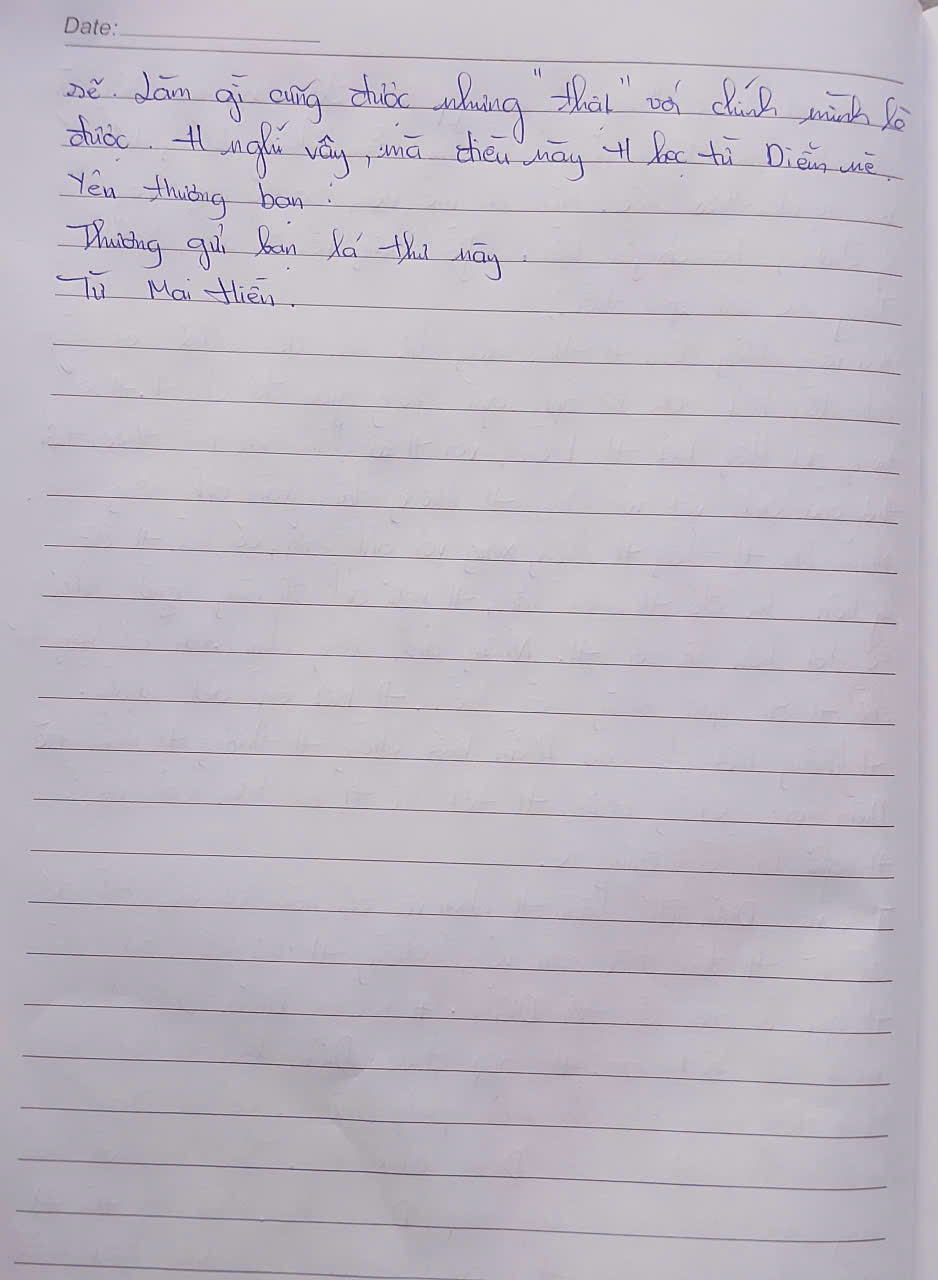 Date:
sẽ. Làm gì cũng được nhưng "thật" với chính mình là
được. H nghĩ vậy, mà điều này H học từ Diễm nè.
Yêu thương bạn.
Thương gửi bạn lá thư này.
Từ Mai Hiền.